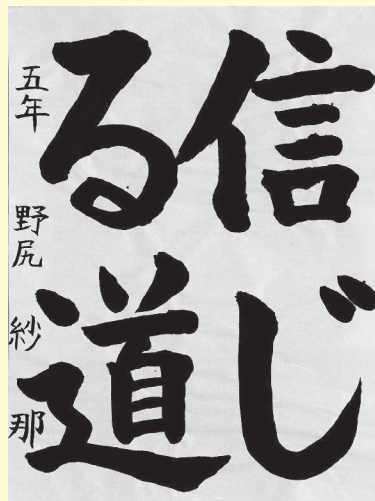 信じ
る道
五年 野尻 紗那